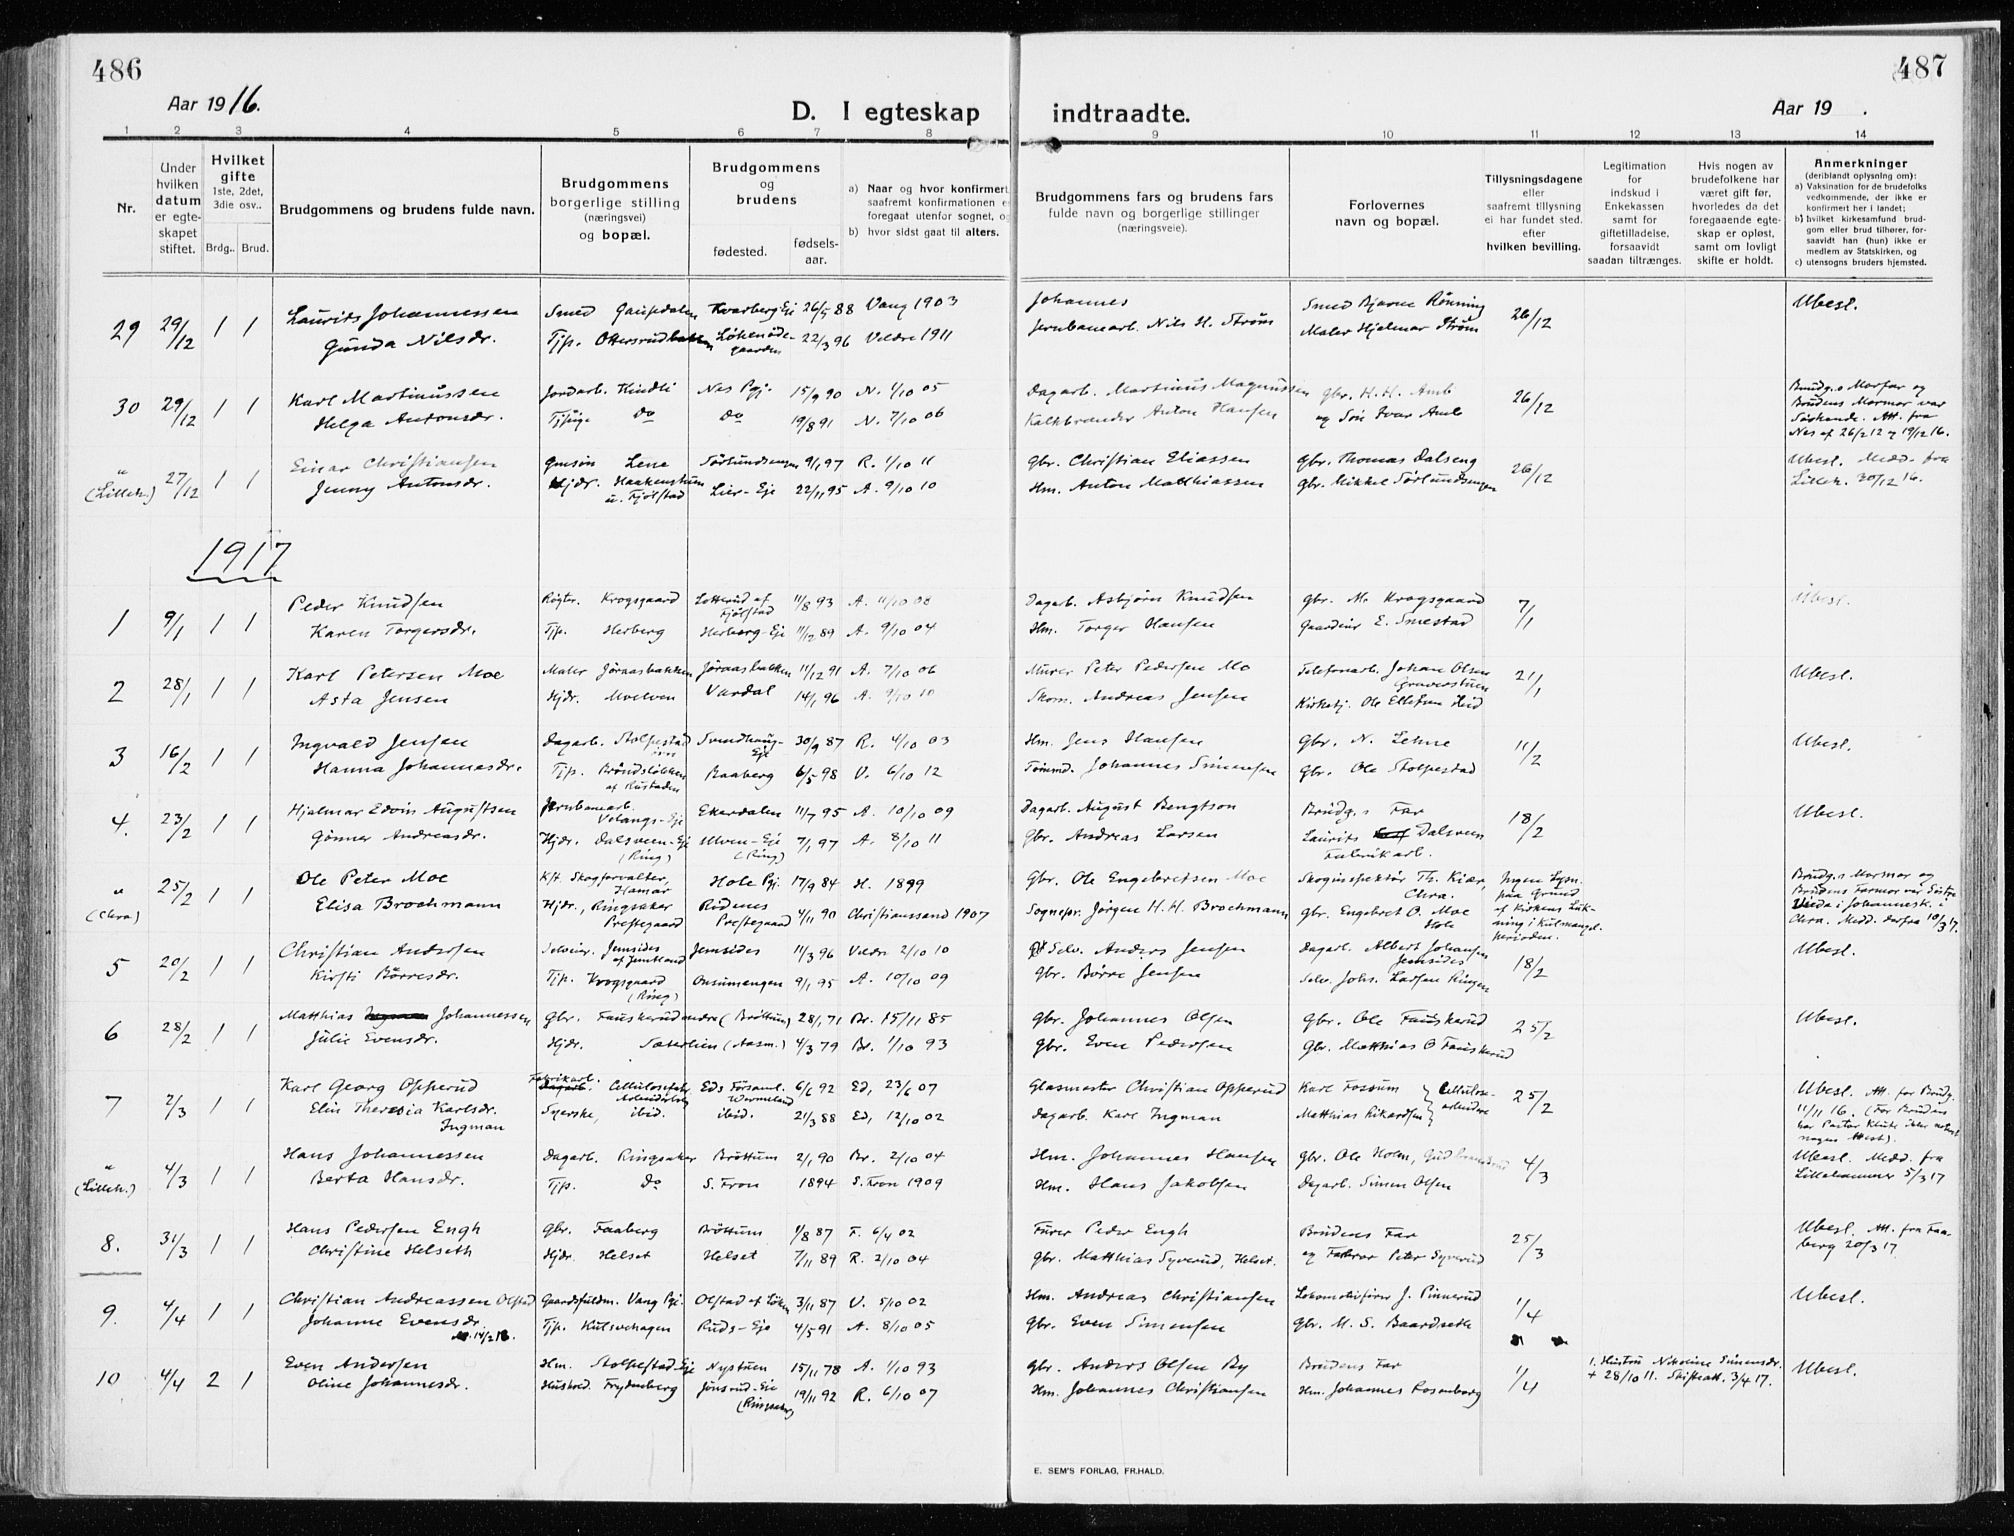 486
487
Aar 1916.
D. I egteskap indtraadte.
Aar 19 .
1 2 3 4 5 6 7 8 9 10 11 12 13 14
Nr.
Under hvilken datum er egteskapet stiftet.
Hvilket gifte 1ste, 2det, 3die osv..
Brdg.. Brud.
Brudgommens og brudens fulde navn.
Brudgommens borgerlige stilling (næringsvei) og bopæl.
Brudgommens og brudens
fødested.
fødsels-aar.
a) Naar og hvor konfirmert,
saafremt konfirmationen e
foregaat utenfor sognet, og
b) hvor sidst gaat til alters.
Brudgommens fars og brudens fars
fulde navn og borgerlige stillinger
(næringsveie).
Forlovernes
navn og bopæl.
Tillysningsdagene
eller
saafremt tillysning
ei har fundet sted.
efter
hvilken bevilling.
Legitimation
for
indskud i
Enkekassen
samt for
giftetilladelse,
forsaavidt
saadan tiltrænges.
Hvis nogen av
brudefolkene har
været gift før,
hvorledes da det
foregaaende egte-
skap er opløst,
samt om lovligt
skifte er holdt.
Anmerkninger
(deriblandt oplysning om):
a) Vaksination for de brudefolks
vedkommende, der ikke er
konfirmert her i landet;
b) hvilket kirkesamfund brud-
gom eller brud tilhører, for-
saavidt han (hun) ikke er
medlem av Statskirken, og
c) utensogns bruders hjemsted.
29 29/12 1 1 Laurits Johannessen Smed Gausdalen Kvarberg Eje 26/5 88 Vang 1903 Johannes Smed Bjarne Rønning 26/12 Ubesl.
Gunda Nilsdr. Tjp. Ottersrudbakken Løkenøde-gaarden 22/3 96 Veldre 1911 Jernbanearb. Nils H. Strøm Maler Hjalmar Strøm
30 29/12 1 1 Karl Martinussen Jordarb. Kindli Nes Pgj. 15/9 90 N. 1/10 05 Dagarb. Martinus Magnussen Gbr. H. H. Amb 26/12 Brudg.s Morfar og
Helga Antonsdr. Tjpige Do Do 19/8 91 N. 7/10 06 Kalkbrænder Anton Hansen og Søn Ivar Amb Brudens Mormor var
Søskende. Att. fra
Nes af 26/2 12 og 19/12 16.
" (Lilleh.) 27/12 1 1 Einar Christiansen Gmsøn Lene Sørlundsengen 9/1 97 R. 1/10 11 Gbr. Christian Eliassen Gbr. Thomas Dalseng 26/12 Ubesl. Medd. fra
Jenny Antonsdr. Hjdr. Haakenstuen u. Fjølstad Lier-Eje 22/11 95 A. 9/10 10 Hm. Anton Matthiassen Gbr. Mikkel Sørlundsengen Lilleh. 30/12 16.
1917
1 9/1 1 1 Peder Knudsen Røgter. Krogsgaard Lotterud af Fjølstad 11/8 93 A. 11/10 08 Dagarb. Asbjørn Knudsen Gbr. M. Krogsgaard 7/1 Ubesl.
Karen Torgersdr. Tjp. Herberg Herberg-Eje 11/12 89 A. 9/10 04 Hm. Torger Hansen Gaardeier E. Smestad
2 28/1 1 1 Karl Petersen Moe Maler Jøraasbakken Jøraasbakken 11/12 91 A. 7/10 06 Murer Peter Pedersen Mo Telefonarb. Johan Olsen Graverstuen 21/1 Ubesl.
Asta Jensen Hjdr. Moelven Vardal 14/1 96 A. 9/10 10 Skom. Andreas Jensen Kirketj. Ole Ellefsen Lied
3 16/2 1 1 Ingvald Jensen Dagarb. Stolpestad Svendhaug-Eje 30/9 87 R. 4/10 03 Hm. Jens Hansen Gbr. N. Lehne 11/2 Ubesl.
Hanna Johannesdr. Tjp. Brøndsløkken af Rustaden Baaberg 6/5 98 V. 6/10 12 Tømmd. Johannes Simensen Gbr. Ole Stolpestad
4. 23/2 1 1 Hjalmar Edvin Augustsen Jernbanearb. Velangs-Eje Ekerdalen 11/7 95 A. 10/10 09 Dagarb. August Bengtson Brudg.s Far 18/2 Ubesl.
Gunner Andreasdr. Hjdr. Dalsveen-Eje (Ring) Ulven-Eje (Ring) 7/1 97 A. 8/10 11 Gbr. Andreas Larsen Laurits Dalsveen Fabrikarb.
" (Chra) 25/2 1 1 Ole Peter Moe Kst. Skogforvalter, Hamar Hole Pgj. 17/9 84 H. 1899 Gbr. Ole Engebretsen Moe Skoginspektør Th. Kiær, Chra. Ingen Lysn. Brudg.s Mormor og
Elisa Brochmann Hjdr., Ringsaker Prestegaard Ridenes Prestegaard 4/11 90 Christianssand 1907 Sognepr. Jörgen H. H. Brochmann Gbr. Engebret O. Moe Hole paa Grund af Kirkens Luk-ning i Kulmangel-perioden. Brudens Farmor var Søstre
Viede i Johannesk. i
Chra. Medd. derfra 10/3 17.
5 20/2 1 1 Christian Andersen Selveier. Jemsides af Jemtland Jemsides 11/3 96 Veldre 2/10 10 Selv. Anders Jensen Dagarb. Albert Johansen Jemsides 18/2 Ubesl.
Kirsti Børresdr. Tjp. Krogsgaard (Ring) Onsumengen 9/1 95 A. 10/10 09 Gbr. Børre Jensen Selv. Johs. Larsen Ringen
6 28/2 1 1 Matthias Johannessen Gbr. Fauskerud nedre (Brøttum) 28/1 71 Br. 15/11 85 Gbr. Johannes Olsen Gbr. Ole Fauskerud 25/2 Ubesl.
Julie Evensdr. Hjdr. Sæterlien (Aasm.) 4/3 79 Br. 1/10 93 Gbr. Even Pedersen Gbr. Matthias O Fauskerud
7 2/3 1 1 Karl Georg Opperud Fabrikarb. Cellulosefabr. Eds Församl. Wermeland 6/6 92 Ed, 23/6 07 Glasmester Christian Opperud Karl Fossum } Cellulose-arbeidere 25/2 Ubesl. Att. for Brudg.
Elin Theresia Karlsdr. Ingman Syerske, ibid. ibid. 21/3 88 Ed, 12/10 02 Dagarb. Karl Ingman Matthias Rikardsen 11/11 16. (For Bruden
har Pastor Klute ikke notert
nogen Attest).
" (Lilleh.) 4/3 1 1 Hans Johannessen Dagarb. Ringsaker Brøttum 2/1 90 Br. 2/10 04 Hm. Johannes Hansen Gbr. Ole Holm, 4/3 Ubesl. Medd. fra
Berta Hansdr. Tjp. Do S. Fron 1894 S. Fron 1909 Hm. Hans Jakobsen Dagarb. Simen Olsen Lillehammer 5/3 17
8. 31/3 1 1 Hans Pedersen Engh Gbr. Faaberg Brøttum 1/8 87 F. 6/4 02 Furer Peder Engh Brudens Far 25/3 Ubesl. Att. fra Faa-
Christine Helseth Hjdr. Helset Helset 7/11 89 R. 2/10 04 Gbr. Matthias Syverud, Helset. og Farbror Peter Syverud berg 20/3 17.
9. 4/4 1 1 Christian Andreassen Olstad Gaardsfuldm. Vang Pgj. Olstad af Løken 3/11 87 V. 5/10 02 Hm. Andreas Christiansen Lokomotivfører J. Pinnerud 1/4 Ubesl.
Johanne Evensdr. Tjp. Kulsvehagen Ruds-Eje 4/5 91 A. 8/10 05 Gbr. Even Simensen Gbr. M. S. Baardseth
14/2 18.
10 4/4 2 1 Even Andersen Hm. Stolpestad-Eje Nystuen 15/11 78 A. 1/10 93 Gbr. Anders Olsen By Brudens Far 1/4 1. Hustru Nikoline Simensdr. Ubesl.
Oline Johannesdr. Hushold. Frydenberg Jønsrud-Eje (Ringsaker) 19/11 92 R. 6/10 07 Hm. Johannes Christiansen Hm. Johannes Rosenborg + 28/10 11. Skifteatt. 3/4 17.
E. SEM'S FORLAG, FR.HALD.